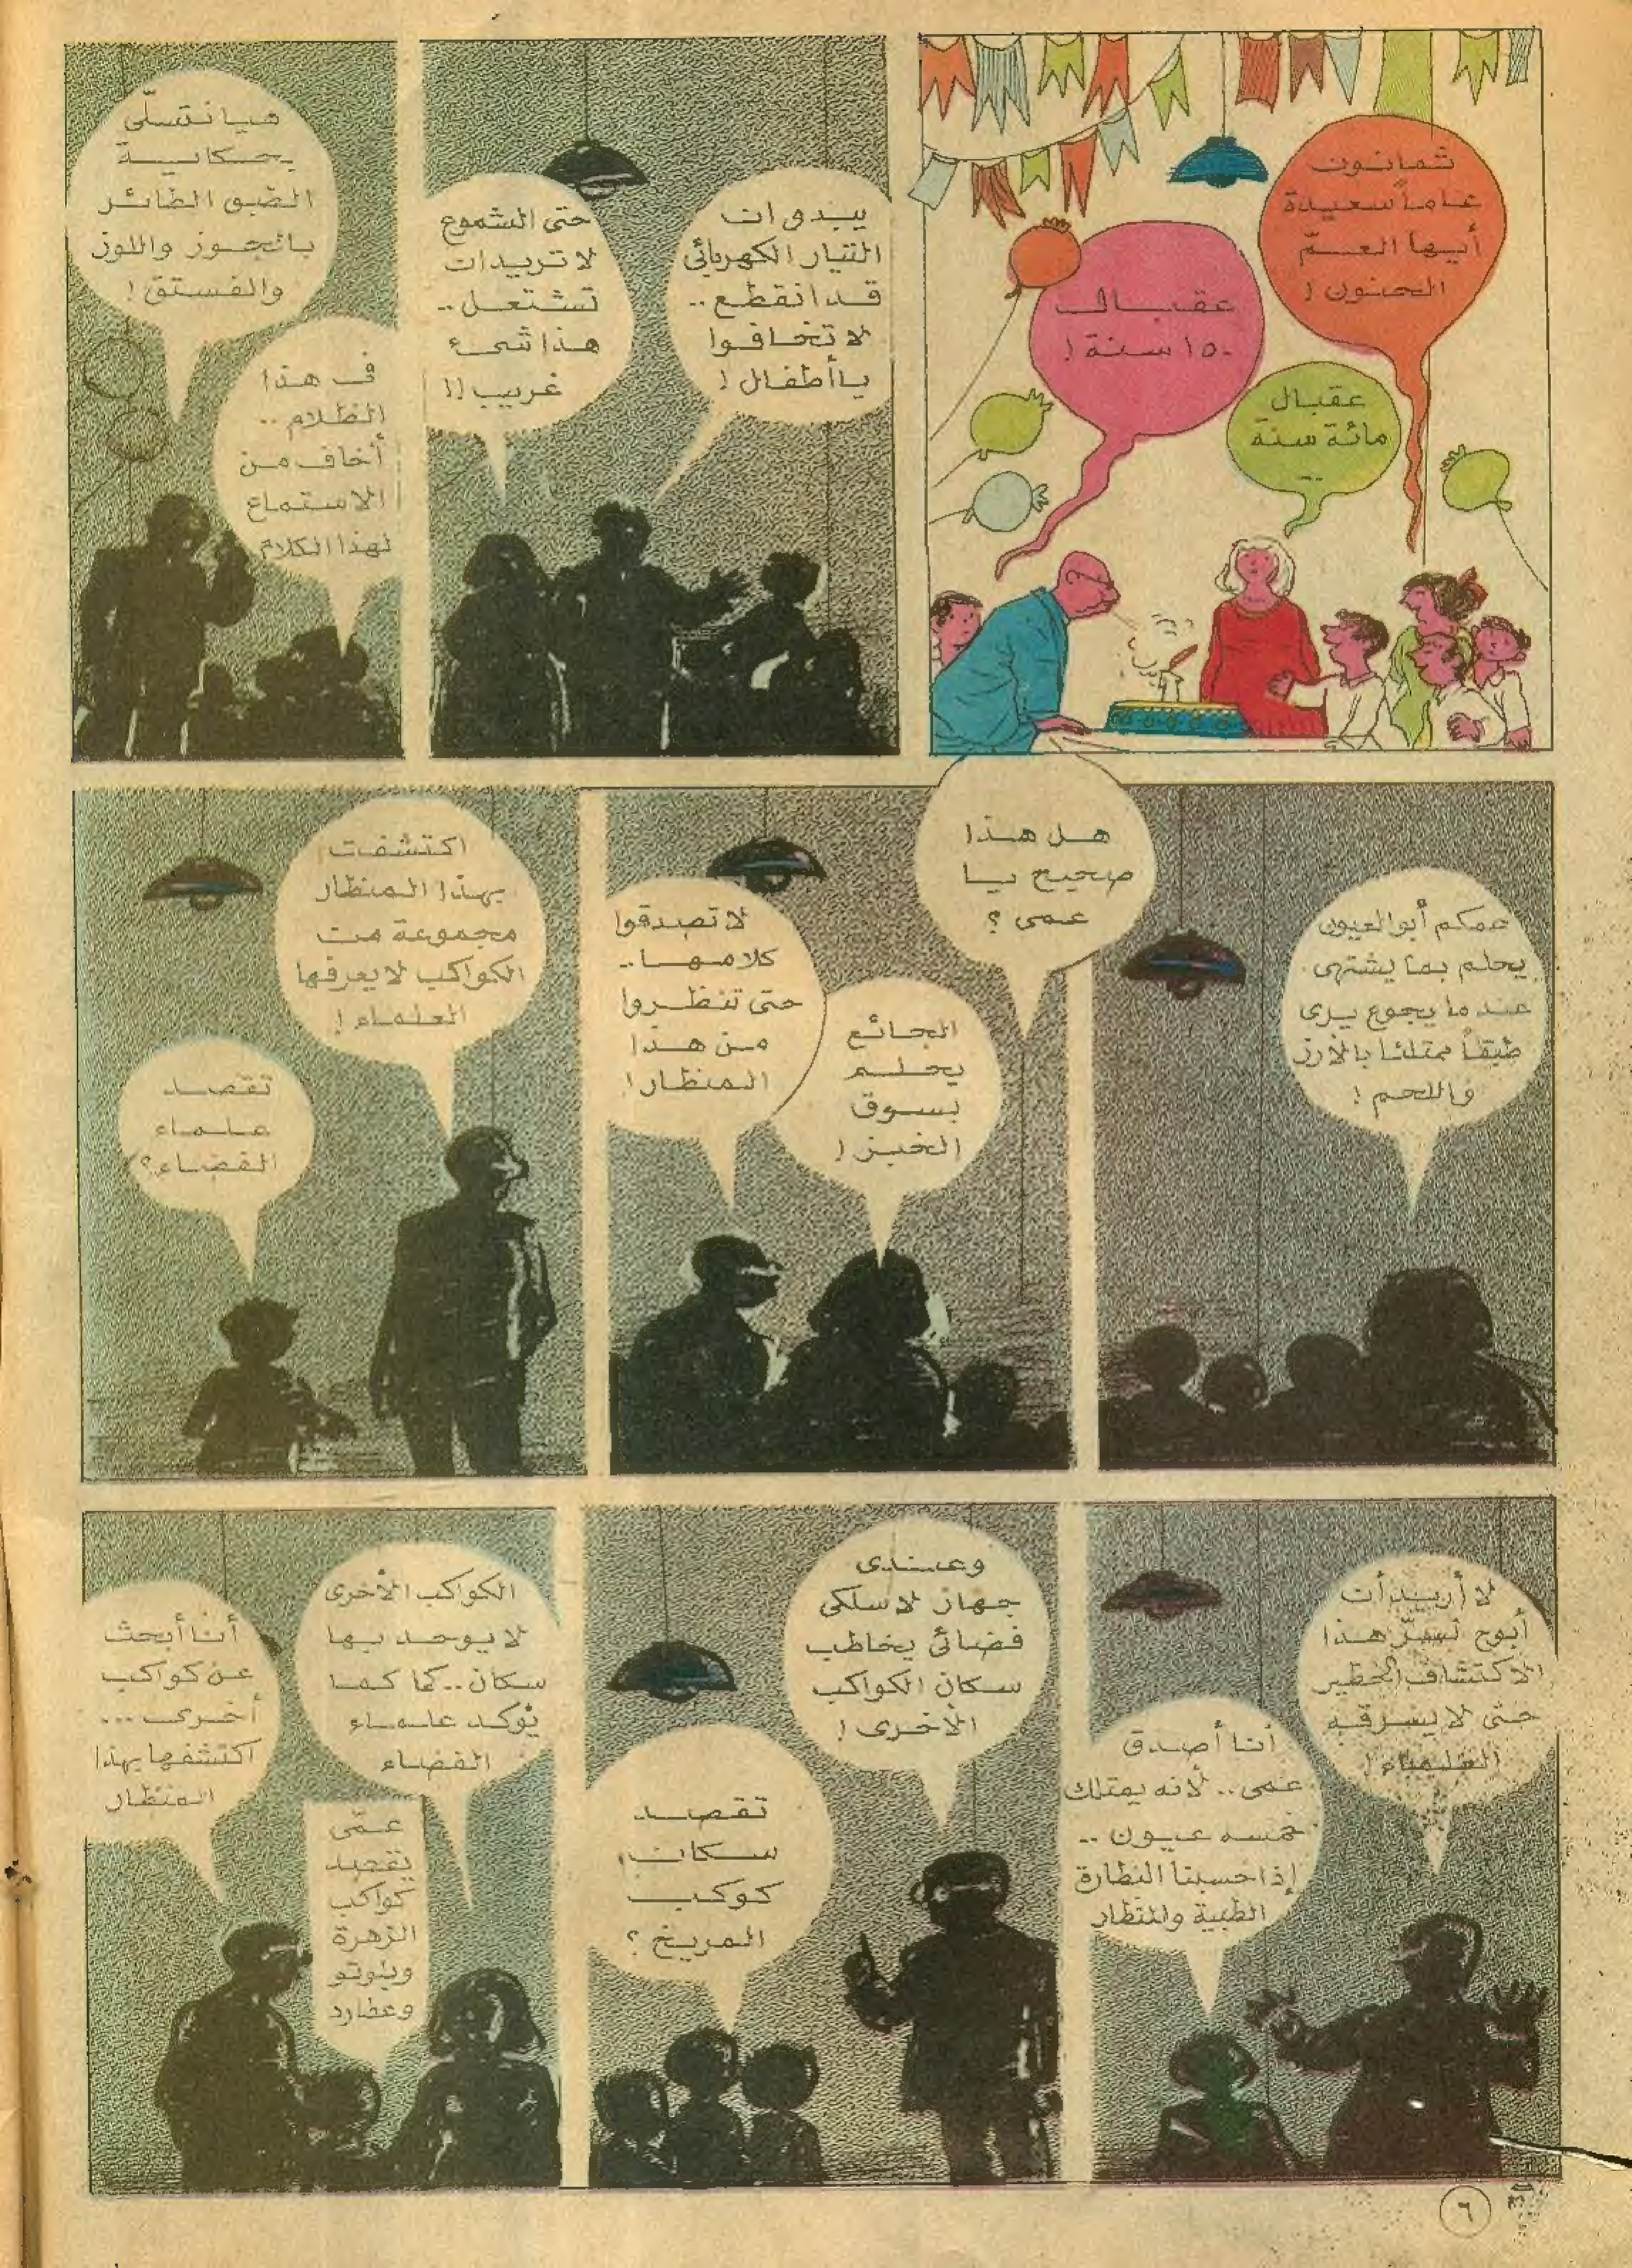 ثمانون
عاماً سعيدة
أيها العمّ
الحنون !
عقبال
مائة سنة
..
عقبال
١٥٠ سنة !
يبدو ان
التيار الكهربائي
قد انقطع ..
لا تخافوا
يا أطفال !
حتى الشموع
لا تريد ان
تشتعل ..
هذا شيء
غريب !!
هيا نتسلّى
بحكاية
الطبق الطائر
بالجوز واللوز
والفستق !
في هذا
الظلام ..
أخاف من
الاستماع
لهذا الكلام
عمكم أبو العيون
يحلم بما يشتهى
عندما يجوع يرى
طبقاً ممتلئا بالأرز
واللحم !
هل هذا
صحيح يا
عمى ؟
الجائع
يحلم
بسوق
الخبز !
لا تصدقوا
كلامها ..
حتى تنظروا
من هذا
المنظار !
اكتشفت
بهذا المنظار
مجموعة من
الكواكب لا يعرفها
العلماء !
تقصد
علماء
الفضاء ؟
لا أريد أن
أبوح بسرّ هذا
الاكتشاف الخطير
حتى لا يسرقه
العلماء !
أنا أصدق
عمى .. لأنه يمتلك
خمسه عيون ..
إذا حسبنا النظارة
الطبية والمنظار
وعندى
جهاز لاسلكى
فضائى يخاطب
سكان الكواكب
الأخرى !
تقصد
سكان
كوكب
المريخ ؟
الكواكب الأخرى
لا يوجد بها
سكان .. كما
يؤكد علماء
الفضاء
عمّى
تقصد
كواكب
الزهرة
وبلوتو
وعطارد
أنا أبحث
عن كواكب
أخرى ...
اكتشفها بهذا
المنظار
٦